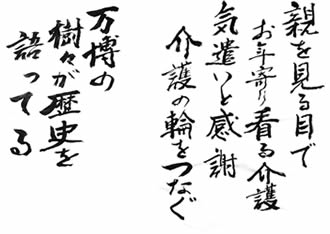 親を見る目で
お年寄り看る介護
気遣いと感謝
介護の輪をつなぐ
万博の
樹々が歴史を
語ってる